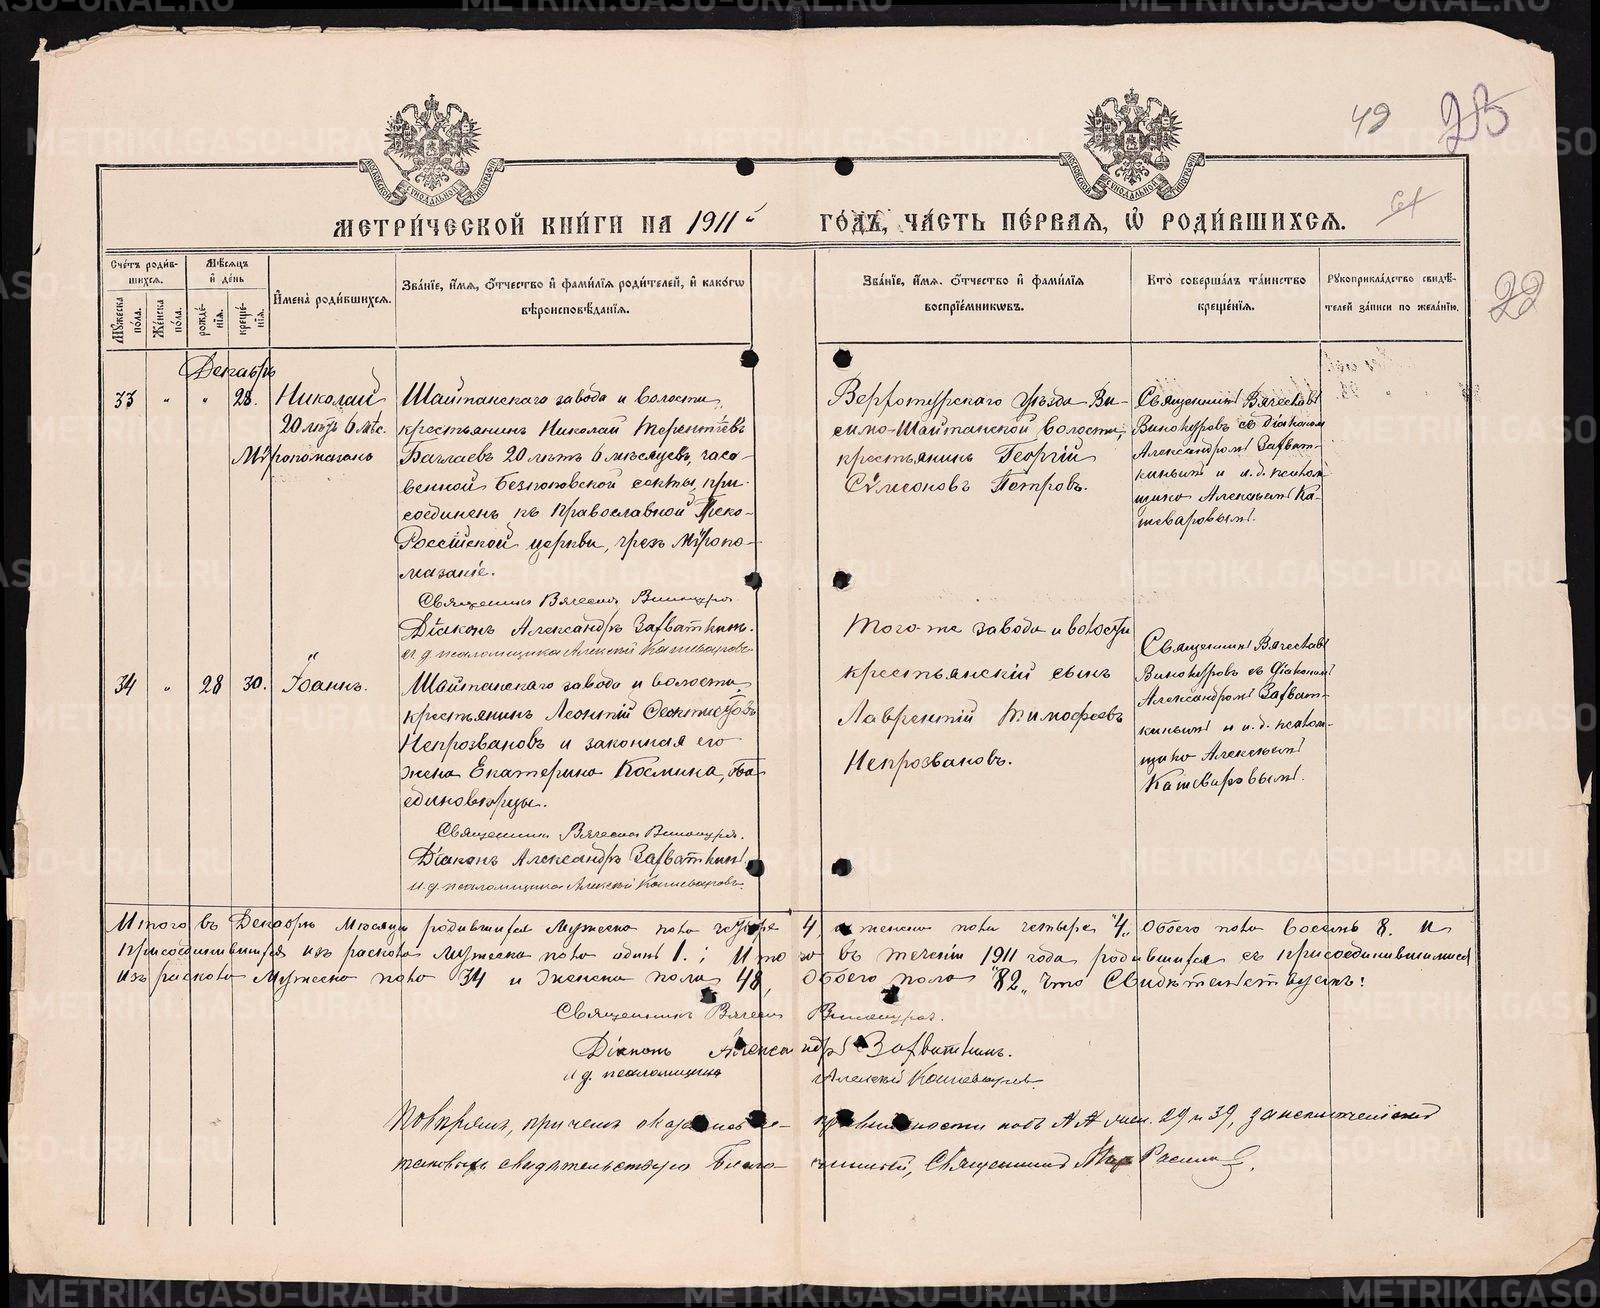 42
25
61
22
МОСКОВСКОЙ СѴНОДАЛЬНОЙ ТИПОГРАФІИ
МОСКОВСКОЙ СѴНОДАЛЬНОЙ ТИПОГРАФІИ
МЕТРИ́ЧЕСКОЙ КНИ́ГИ НА 1911й ГО́ДЪ, ЧА́СТЬ ПЕ́РВАЯ, Ѡ РОДИ́ВШИХСЯ.
Сче́тъ роди́вшихся.
Мꙋ́жеска по́ла.
Же́нска по́ла.
Мѣ́сяцъ и де́нь
рожде́нїя.
креще́нїя.
Имена̀ роди́вшихся.
Зва́нїе, и́мя, о́тчество и фами́лїя роди́телей, и како́гѡ
вѣроисповѣ́данїя.
Зва́нїе, и́мя, о́тчество и фами́лїя
воспрїе́мникѡвъ.
Кто̀ соверша́лъ та́инство
креще́нїя.
Рꙋкоприкла́дство свидѣ́-
телей за́писи по жела́нїю.
Декабрь
33 " " 28.
Николай
20 лѣтъ 6 мѣс.
Мѵропомазанъ
Шайтанскаго завода и волости,
крестьянинъ Николай Терентіевъ
Баглаевъ 20 лѣтъ 6 мѣсяцевъ, часо-
венной безпоповской секты, при-
соединенъ къ православной Греко-
Россійской церкви, чрезъ Мѵропо-
мазаніе.
Священникъ Вячеслав Винокуровъ
Діаконъ Александръ Завьаткинъ.
и д псаломщика Алексѣй Кашеваровъ
Верхотурскаго уѣзда Ви-
симо-Шайтанской волости,
крестьянинъ Георгій
Сѵмеоновъ Петровъ.
Священникъ Вячеславъ
Винокуровъ съ діакономъ
Александромъ Завьат-
кинымъ и и.д. псалом-
щика Алексѣемъ Ка-
шеваровымъ.
34 " 28 30.
Іоаннъ.
Шайтанскаго завода и волости,
крестьянинъ Леонтій
Непрозвановъ и законная его
жена Екатерина Космина, оба
единовѣрцы.
Священникъ Вячеслав Винокуровъ.
Діаконъ Александръ Завьаткинъ.
и.д. псаломщика Алексѣй Кашеваровъ
Того-же завода и волости
крестьянскій сынъ
Лаврентій Тимофеевъ
Непрозвановъ.
Священникъ Вячеславъ
Винокуровъ съ діакономъ
Александромъ Завьат-
кинымъ и и.д. псалом-
щика Алексѣемъ
Кашеваровымъ.
Итого въ Декабрѣ мѣсяцѣ родившихся мужеска пола четыре 4, а женска пола четыре "4" Обоего пола восемь 8. и
присоединившихся изъ раскола мужеска пола одинъ 1.; Итого въ теченіи 1911 года родившихся съ присоединившимися
изъ раскола мужеска пола 34 и женска пола 48, Обоего пола "82" что свидѣтельствуемъ:
Священникъ Вячеслав Винокуровъ.
Діаконъ Александръ Завьаткинъ.
и д. псаломщика Алексѣй Кашеваровъ
причемъ оказались не- правильности подъ №№ муж. 29 и 39,
свидѣтельствую Благо- чинный, Священникъ